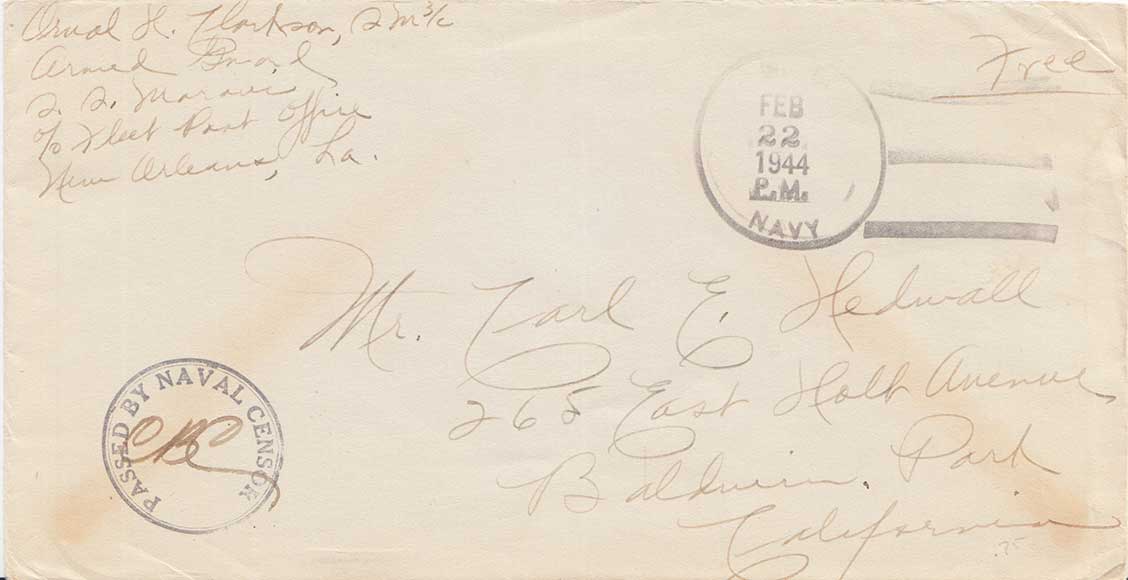 Orval H. Clarkson, SM 3/c
Armed Guard
S. S. Maravi
c/o Fleet Post Office
New Orleans, La.
Free
FEB
22
1944
P.M.
NAVY
Mr. Carl E. Hedwall
265 East Holt Avenue
Baldwin Park
California
PASSED BY NAVAL CENSOR
.75